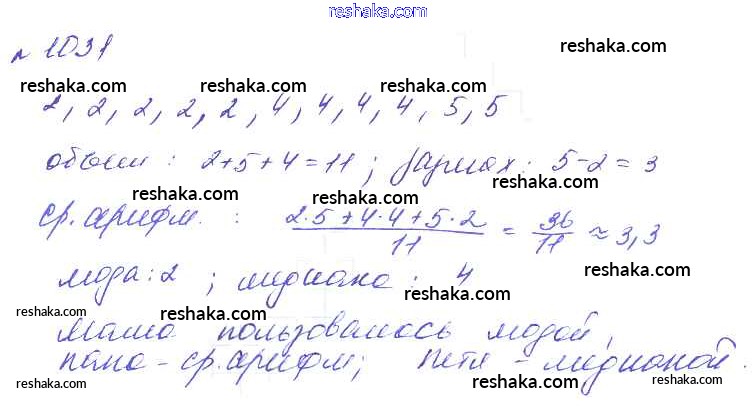 reshaka.com
№ 1031
reshaka.com
reshaka.com reshaka.com reshaka.com
2, 2, 2, 2, 2, 4, 4, 4, 4, 5, 5
объем : 2+5+4=11 ; размах : 5-2=3
reshaka.com reshaka.com reshaka.com
ср. арифм. : (2·5+4·4+5·2)/11 = 36/11 ≈ 3,3
reshaka.com reshaka.com
мода: 2 ; медиана : 4
reshaka.com reshaka.com
Маша пользовалась модой,
папа - ср. арифм; Петя - медианой.
reshaka.com reshaka.com reshaka.com